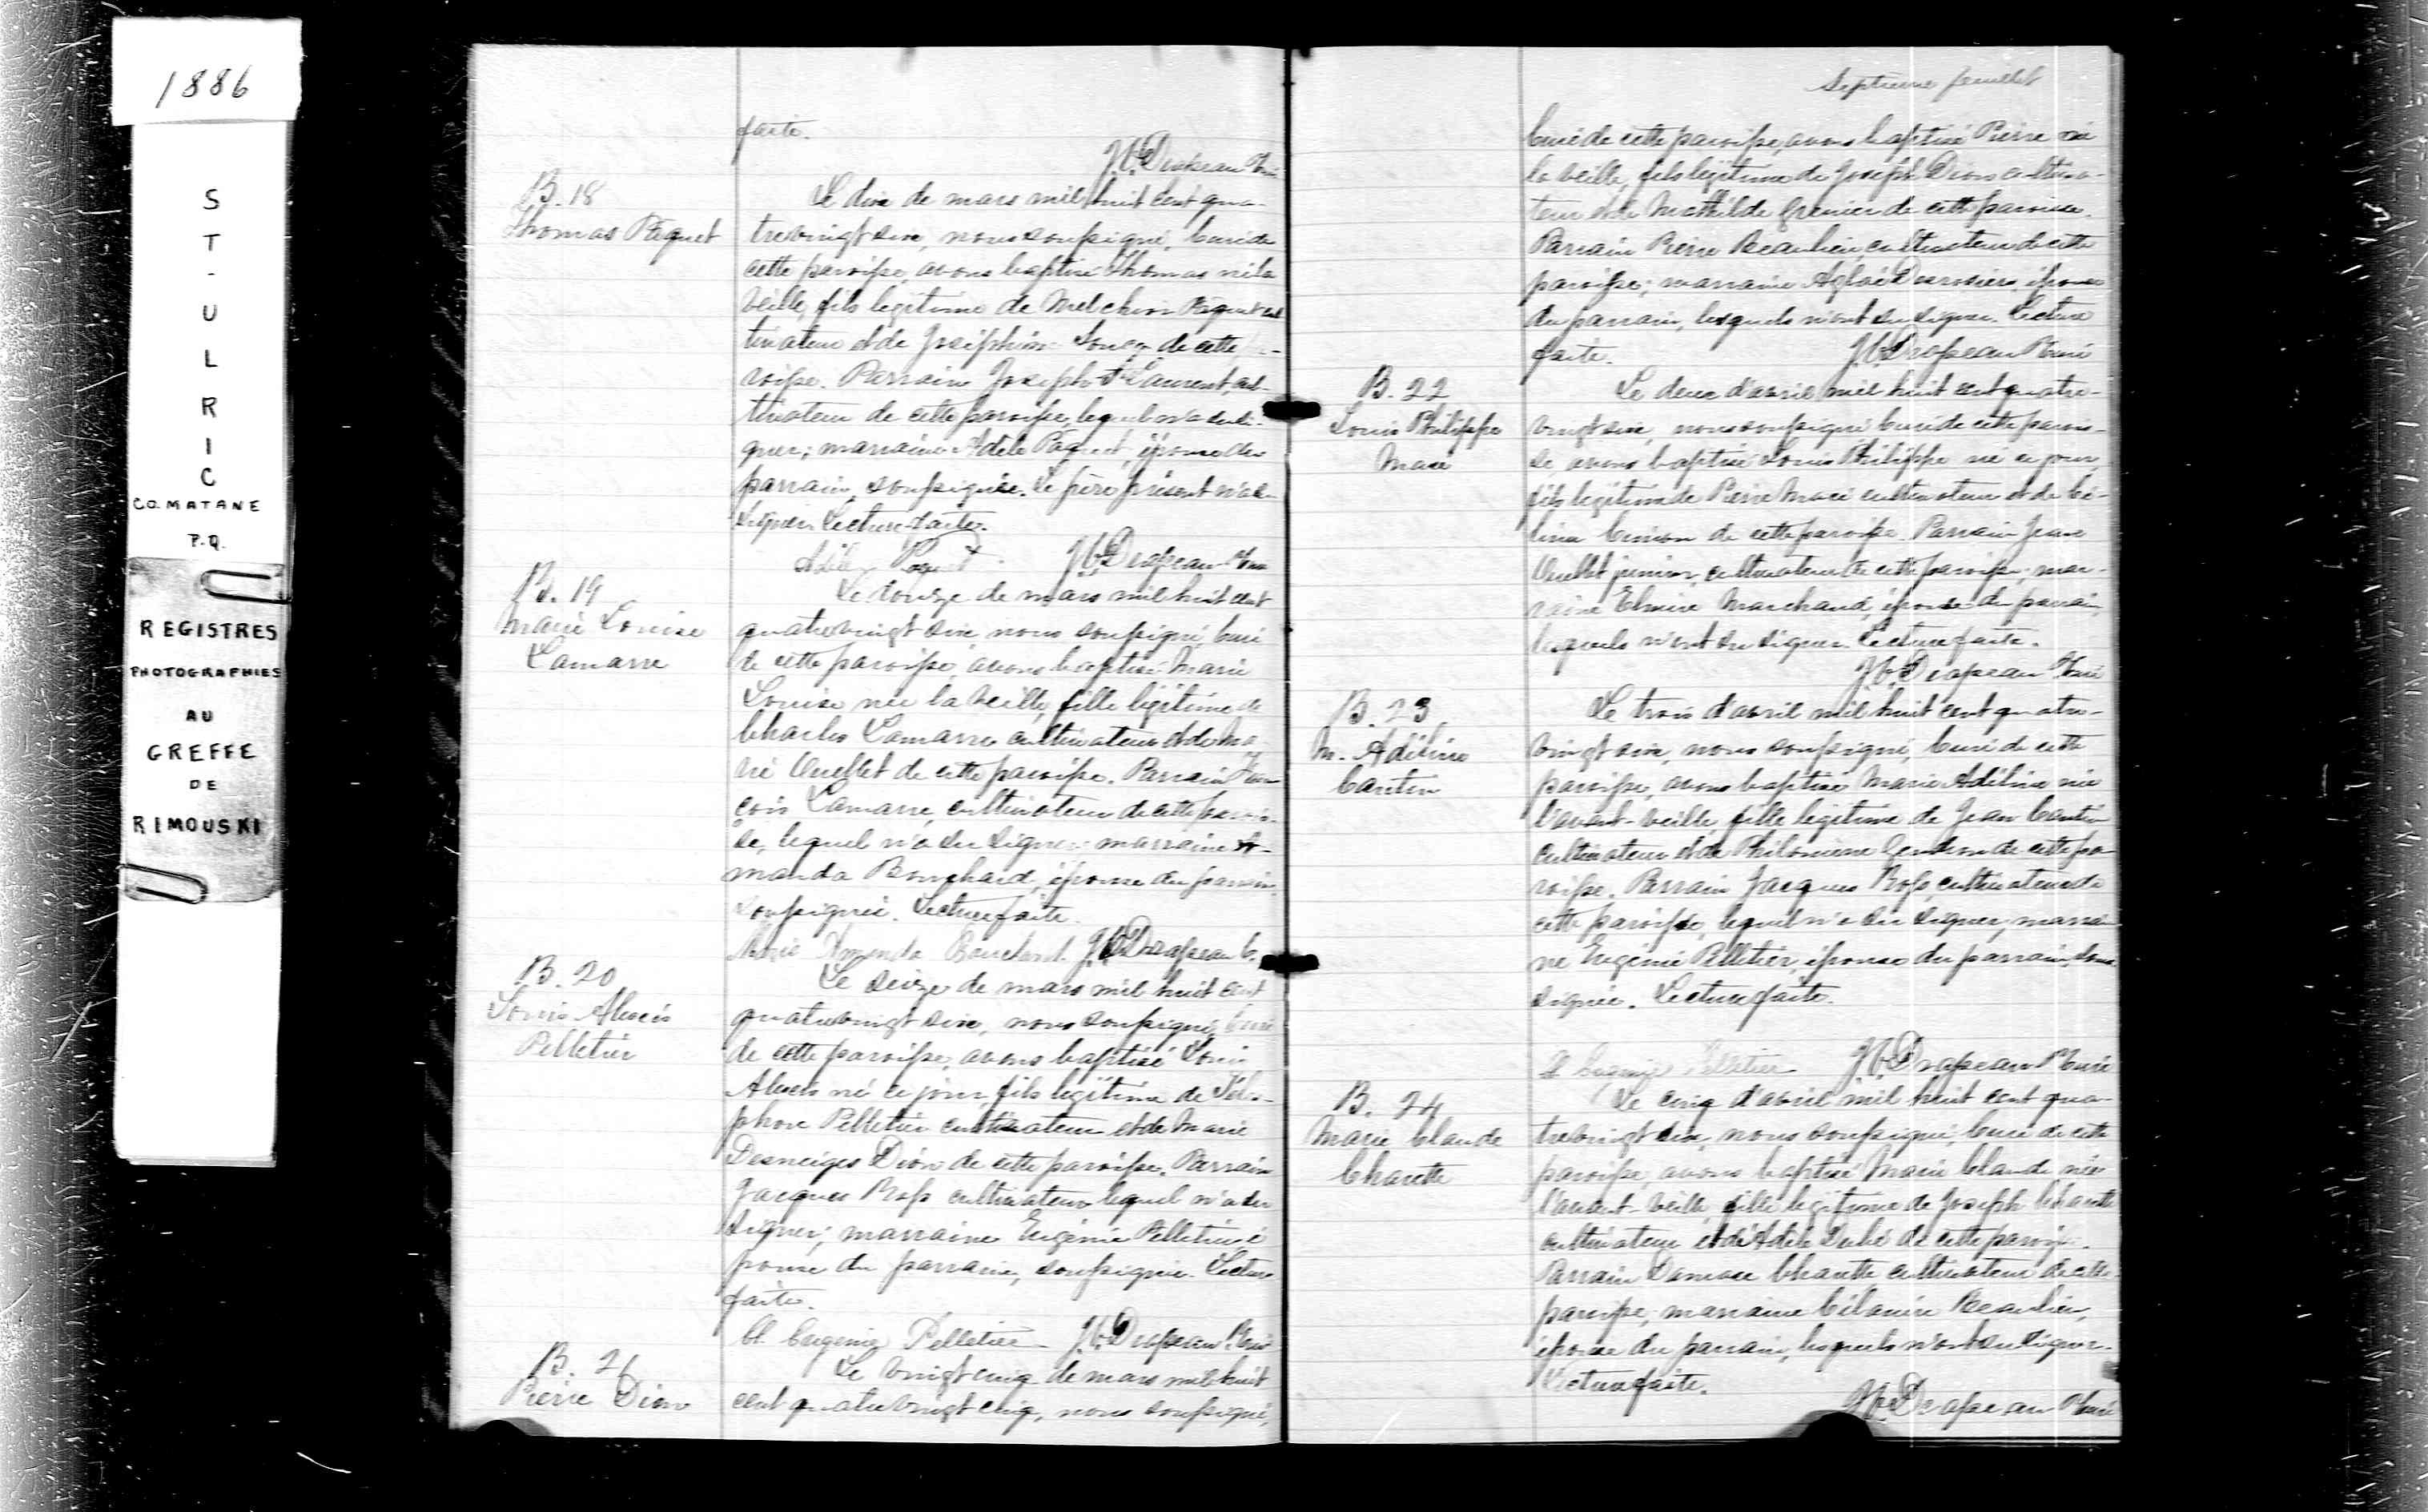 1886
S
T
-
U
L
R
I
C
CO. MATANE
P.Q.
REGISTRES
PHOTOGRAPHIES
AU
GREFFE
DE
RIMOUSKI
faite.
J.C. Drapeau Ptre
B. 18
Thomas Paquet
Le dix de mars mil huit cent qua-
trevingt six, nous soussigné, Curé de
cette paroisse, avons baptisé Thomas né la
veille, fils légitime de Melchior Paquet cul
tivateur et de Joséphine Soucy de cette pa-
roisse. Parrain Joseph St Laurent, cul-
tivateur de cette paroisse, lequel n'a su si-
gner; marraine Adèle Paquet, épouse du
parrain, soussignée. Le père présent n'a su
signer. Lecture faite.
Adèle Paquet J.C. Drapeau Ptre
B. 19
Marie Louise
Lamarre
Le douze de mars mil huit cent
quatrevingt six, nous soussigné, Curé
de cette paroisse, avons baptisé Marie
Louise née la veille, fille légitime de
Charles Lamarre cultivateur et de Ma
rie Ouellet de cette paroisse. Parrain Fran
çois Lamarre, cultivateur de cette parois-
se, lequel n'a su signer; marraine A-
manda Bouchard, épouse du parrain,
soussignée. Lecture faite.
Marie Amanda Bouchard J.C. Drapeau C.
B. 20
Louis Alexis
Pelletier
Le seize de mars mil huit cent
quatrevingt six, nous soussigné, Curé
de cette paroisse, avons baptisé Louis
Alexis né ce jour, fils légitime de Téles-
phore Pelletier cultivateur et de Marie
Desneiges Dion de cette paroisse. Parrain
Jacques Ross cultivateur lequel n'a su
signer; marraine Eugénie Pelletier é
pouse du parrain, soussignée. Lecture
faite.
M. Eugenie Pelletier J.C. Drapeau Ptre
B. 21
Pierre Dion
Le vingt cinq de mars mil huit
cent quatrevingt cinq, nous soussigné,
Septieme feuillet
Curé de cette paroisse, avons baptisé Pierre né
la veille, fils légitime de Joseph Dion cultiva-
teur et de Mathilde Grenier de cette paroisse.
Parrain Pierre Beaulieu, cultivateur de cette
paroisse; marraine Aglaé Desrosiers, épouse
du parrain, lesquels n'ont su signer. Lecture
faite. J.C. Drapeau Ptre
B. 22
Louis Philippe
Macé
Le deux d'avril mil huit cent quatre-
vingt six, nous soussigné Curé de cette parois-
se avons baptisé Louis Philippe né ce jour,
fils légitime de Pierre Macé cultivateur et de Cé-
lina Simon de cette paroisse. Parrain Jean
Ouellet junior, cultivateur de cette paroisse; mar-
raine Elmire Marchand, épouse du parrain,
lesquels n'ont su signer. Lecture faite.
J.C. Drapeau Ptre
B. 23
M. Adéline
Cantin
Le trois d'avril mil huit cent quatre-
vingt six, nous soussigné, Curé de cette
paroisse, avons baptisé Marie Adéline née
l'avant-veille, fille légitime de Jean Cantin
cultivateur et de Philomène Gendron de cette pa
roisse. Parrain Jacques Ross, cultivateur de
cette paroisse, lequel n'a su signer, marrai-
ne Eugénie Pelletier, épouse du parrain, sous
signée. Lecture faite.
M Eugenie Pelletier J.C. Drapeau Ptre
B. 24
Marie Claude
Charette
Le cinq d'avril mil huit cent qua-
trevingt six, nous soussigné, Curé de cette
paroisse, avons baptisé Marie Claude née
l'avant-veille, fille légitime de Joseph Charette
cultivateur et de Adèle Dubé de cette paroisse.
Parrain Damase Charette cultivateur de cette
paroisse; marraine Célanire Beaulieu,
épouse du parrain, lesquels n'ont su signer.
Lecture faite.
J.C. Drapeau Ptre